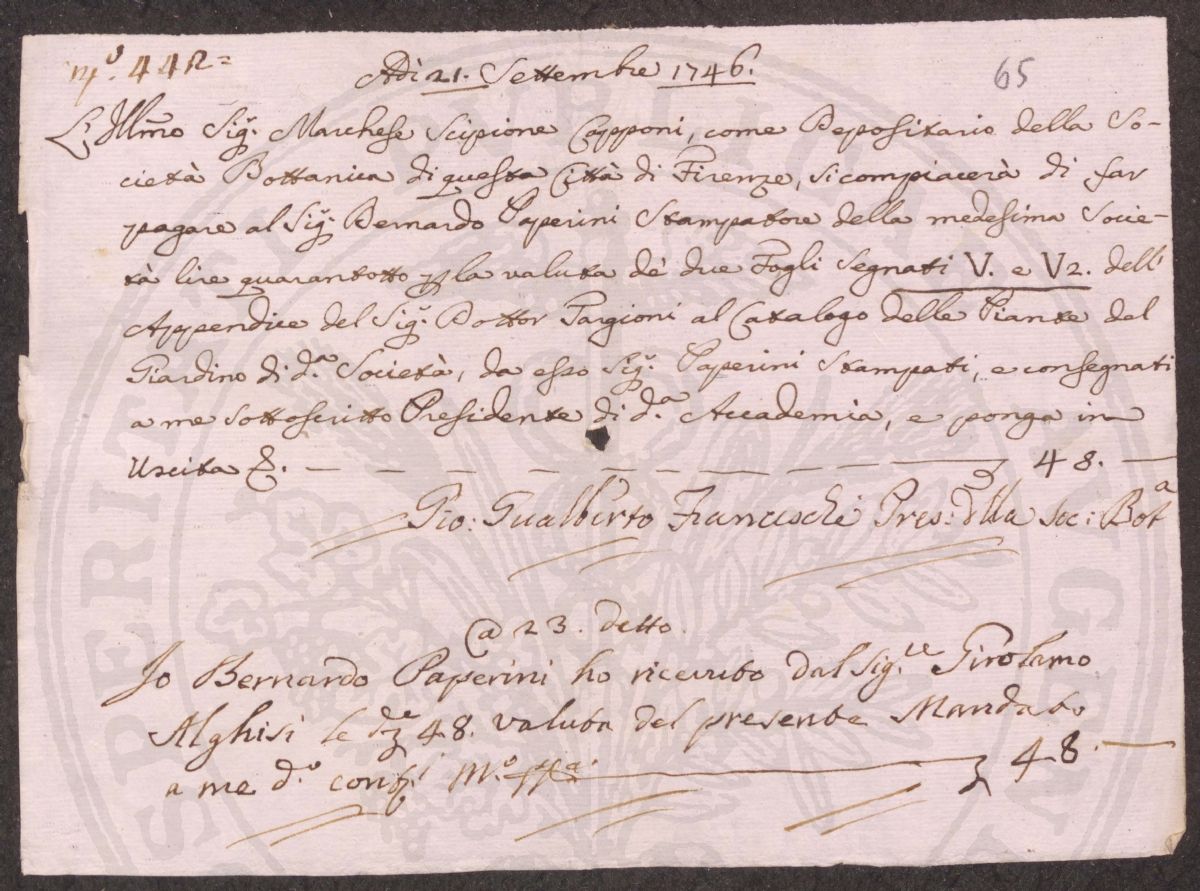 Nº. 442=
Adì 21. Settembre 1746.
65
L'Illmo Sigr. Marchese Scipione Capponi, come Depositario della So-
cietà Bottanica di questa Città di Firenze, si compiacerà di far
pagare al Sigr. Bernardo Paperini Stampatore della medesima Socie-
tà lire quarantotto p la valuta de' due Fogli segnati V. e V2. dell'
Appendice del Sigr. Dottor Targioni al Catalogo delle Piante del
Giardino di da. Società, da esso Sigr. Paperini Stampati, e consegnati
a me sottoscritto Presidente di da. Accademia, e ponga in
Uscita £. 48.
Gio: Gualberto Franceschi Pres: dlla Soc: Bota
@ 23. detto.
Io Bernardo Paperini ho ricevuto dal Sig.re Girolamo
Alghisi le dte 48. valuta del presente Mandato
a me do. conti Mo. ppa. 48.
SPERITATE PVBLICA AVGENDAE